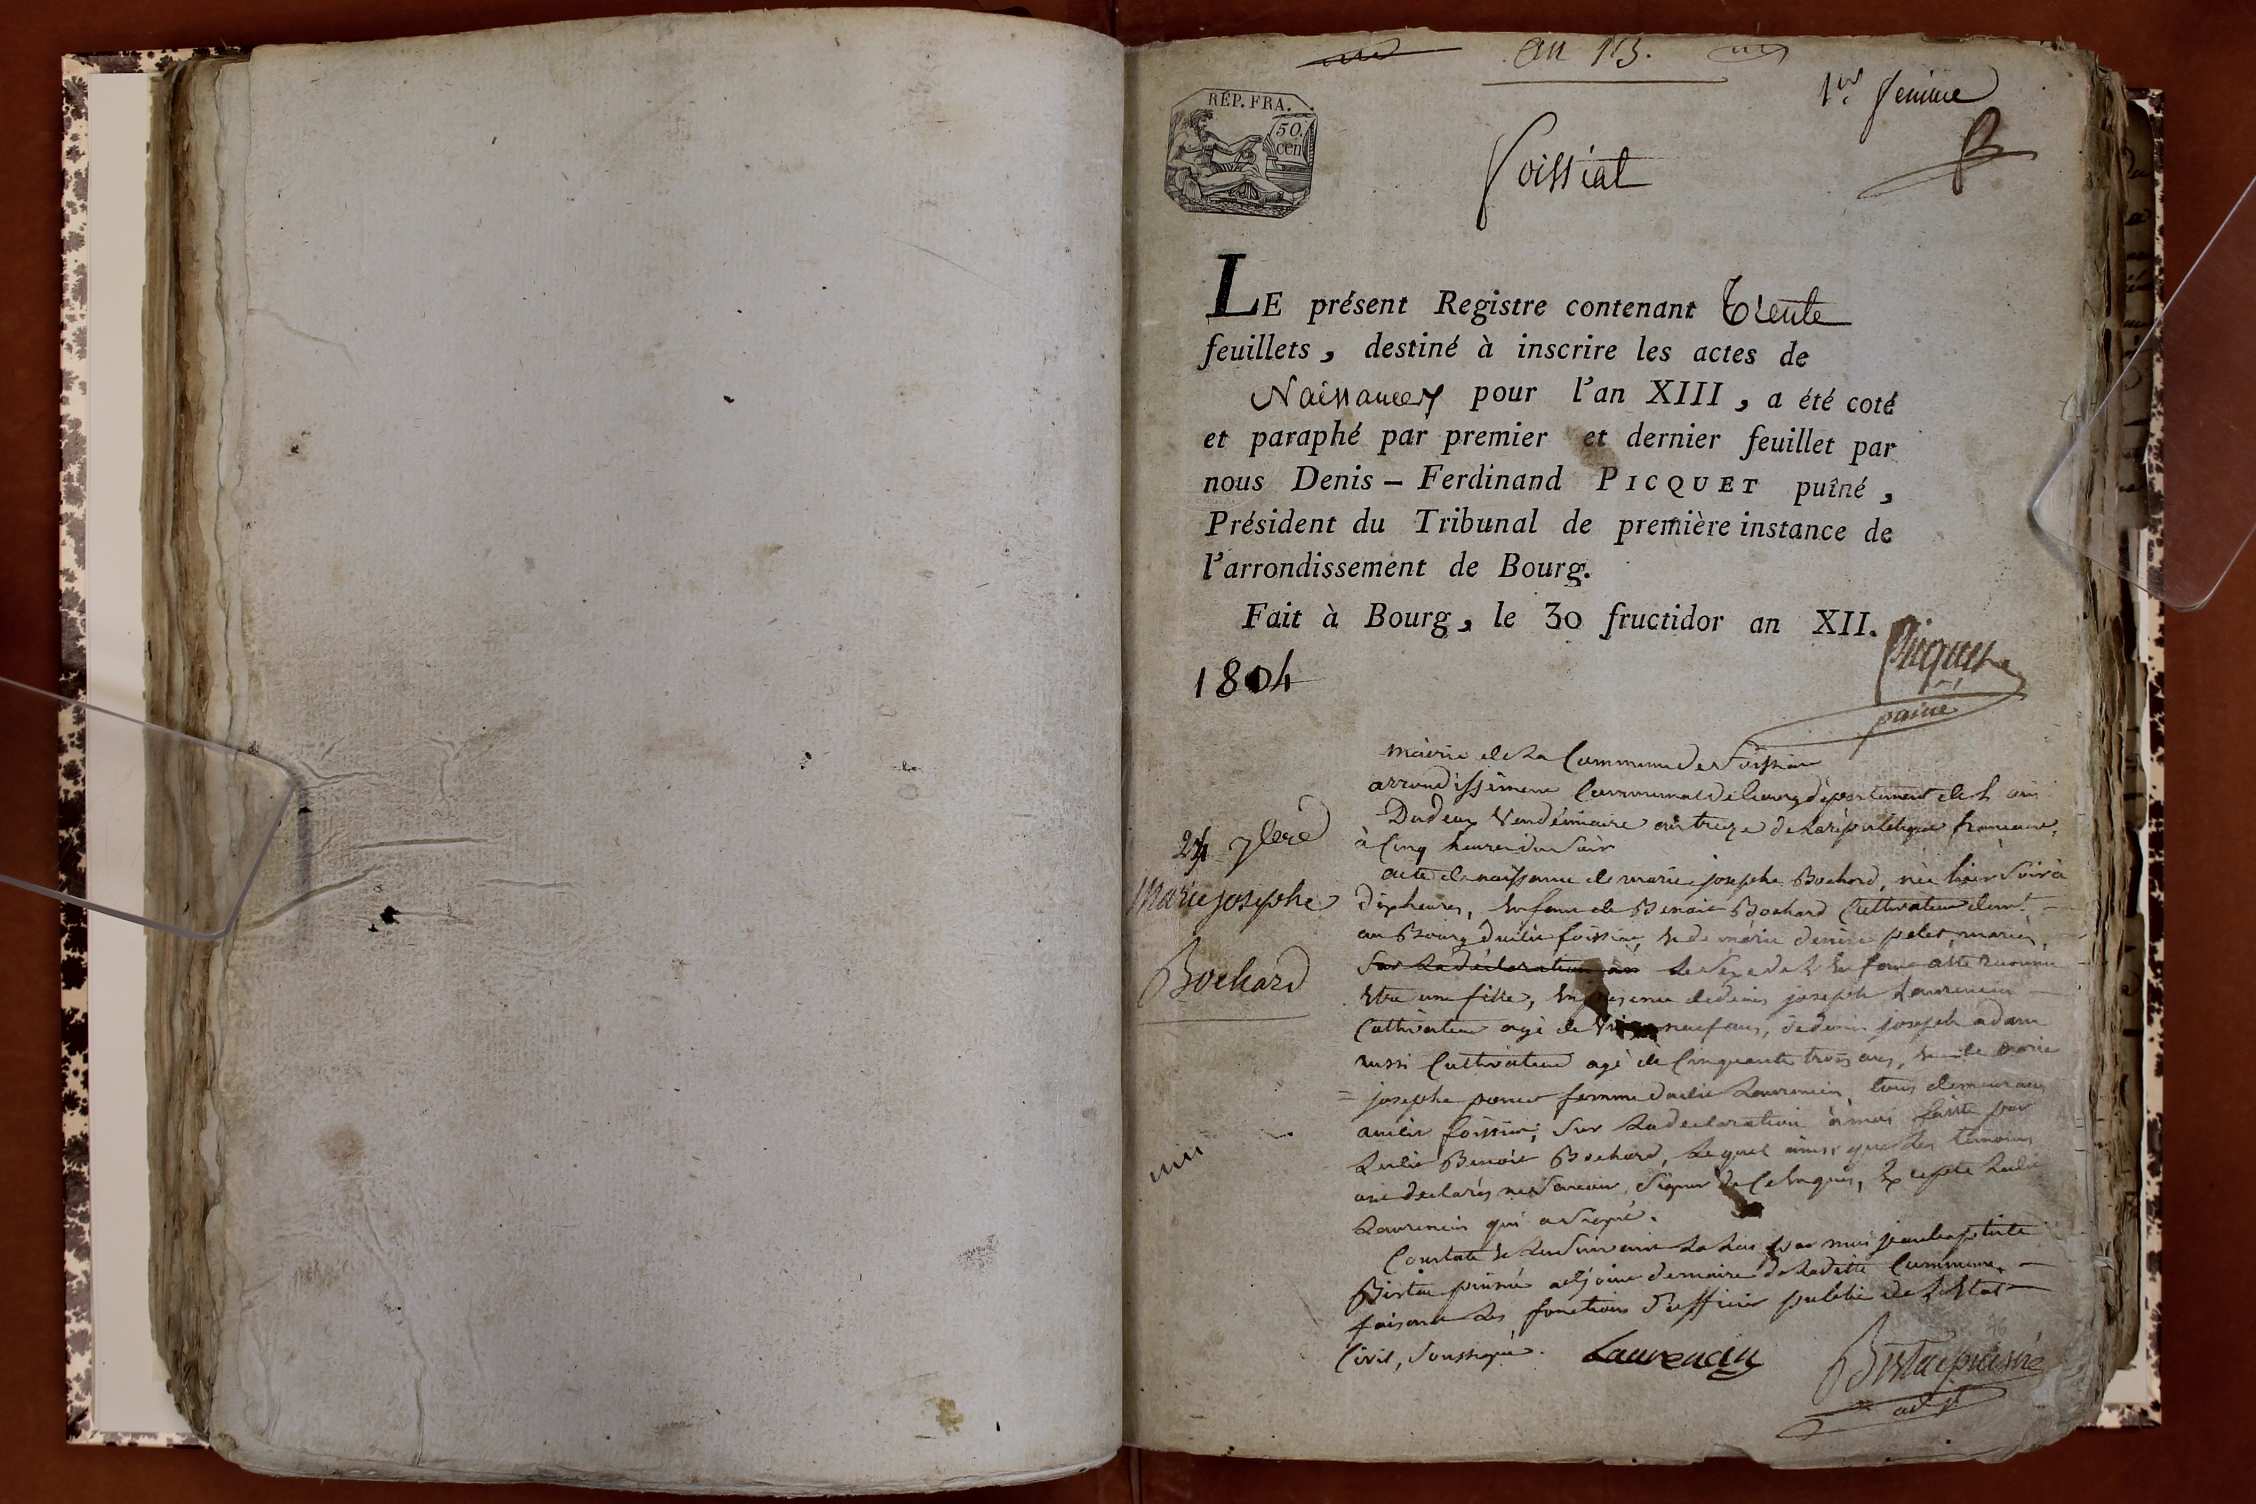 an 13.
1er feuille
RÉP. FRA.
50.
cen
Foissiat
LE présent Registre contenant trente
feuillets, destiné à inscrire les actes de
Naissances pour l'an XIII, a été coté
et paraphé par premier et dernier feuillet par
nous Denis-Ferdinand PICQUET puîné,
Président du Tribunal de première instance de
l'arrondissement de Bourg.
Fait à Bourg, le 30 fructidor an XII.
1804
Picquet
puiné
mairie de La Commune de foissia
arrondissement Communal de bourg département de L'ain
Du deux Vendémiaire an treize de La république francaise,
à Cinq heures du Soir
24 7bre
Marie josephe
Bochard
acte de naissance de marie josephe Bochard, née hier Soir à
dix heures, Enfant de Benoit Bochard Cultivateur demt
au Bourg dudit foissia, et de marie denise pelet, mariés,
Sur La déclaration Le Sexe de L'Enfant a été reconnu
Etre une fille, En présence de denis joseph Laurencin
Cultivateur agé de neuf ans, de denis joseph adam
aussi Cultivateur agé de Cinquante trois ans, et de marie
= josephe poncet femme dudit Laurencin, tous demeurans
audit foissia; Sur La declaration à moi faitte par
Ledit Benoit Bochard, Lequel ainsi que Les temoins
ont declarés ne Savoir Signer de Ce Enquis, Excepté Ledit
Laurencin qui a Signé.
Constaté Suivant La Loi par moi jean baptiste
Bistac puisné adjoint de maire de Laditte Commune,
faisant Les fonctions d'officier public de L'Etat
Civil, Soussigné. Laurencin
Bistac puisné
adjt